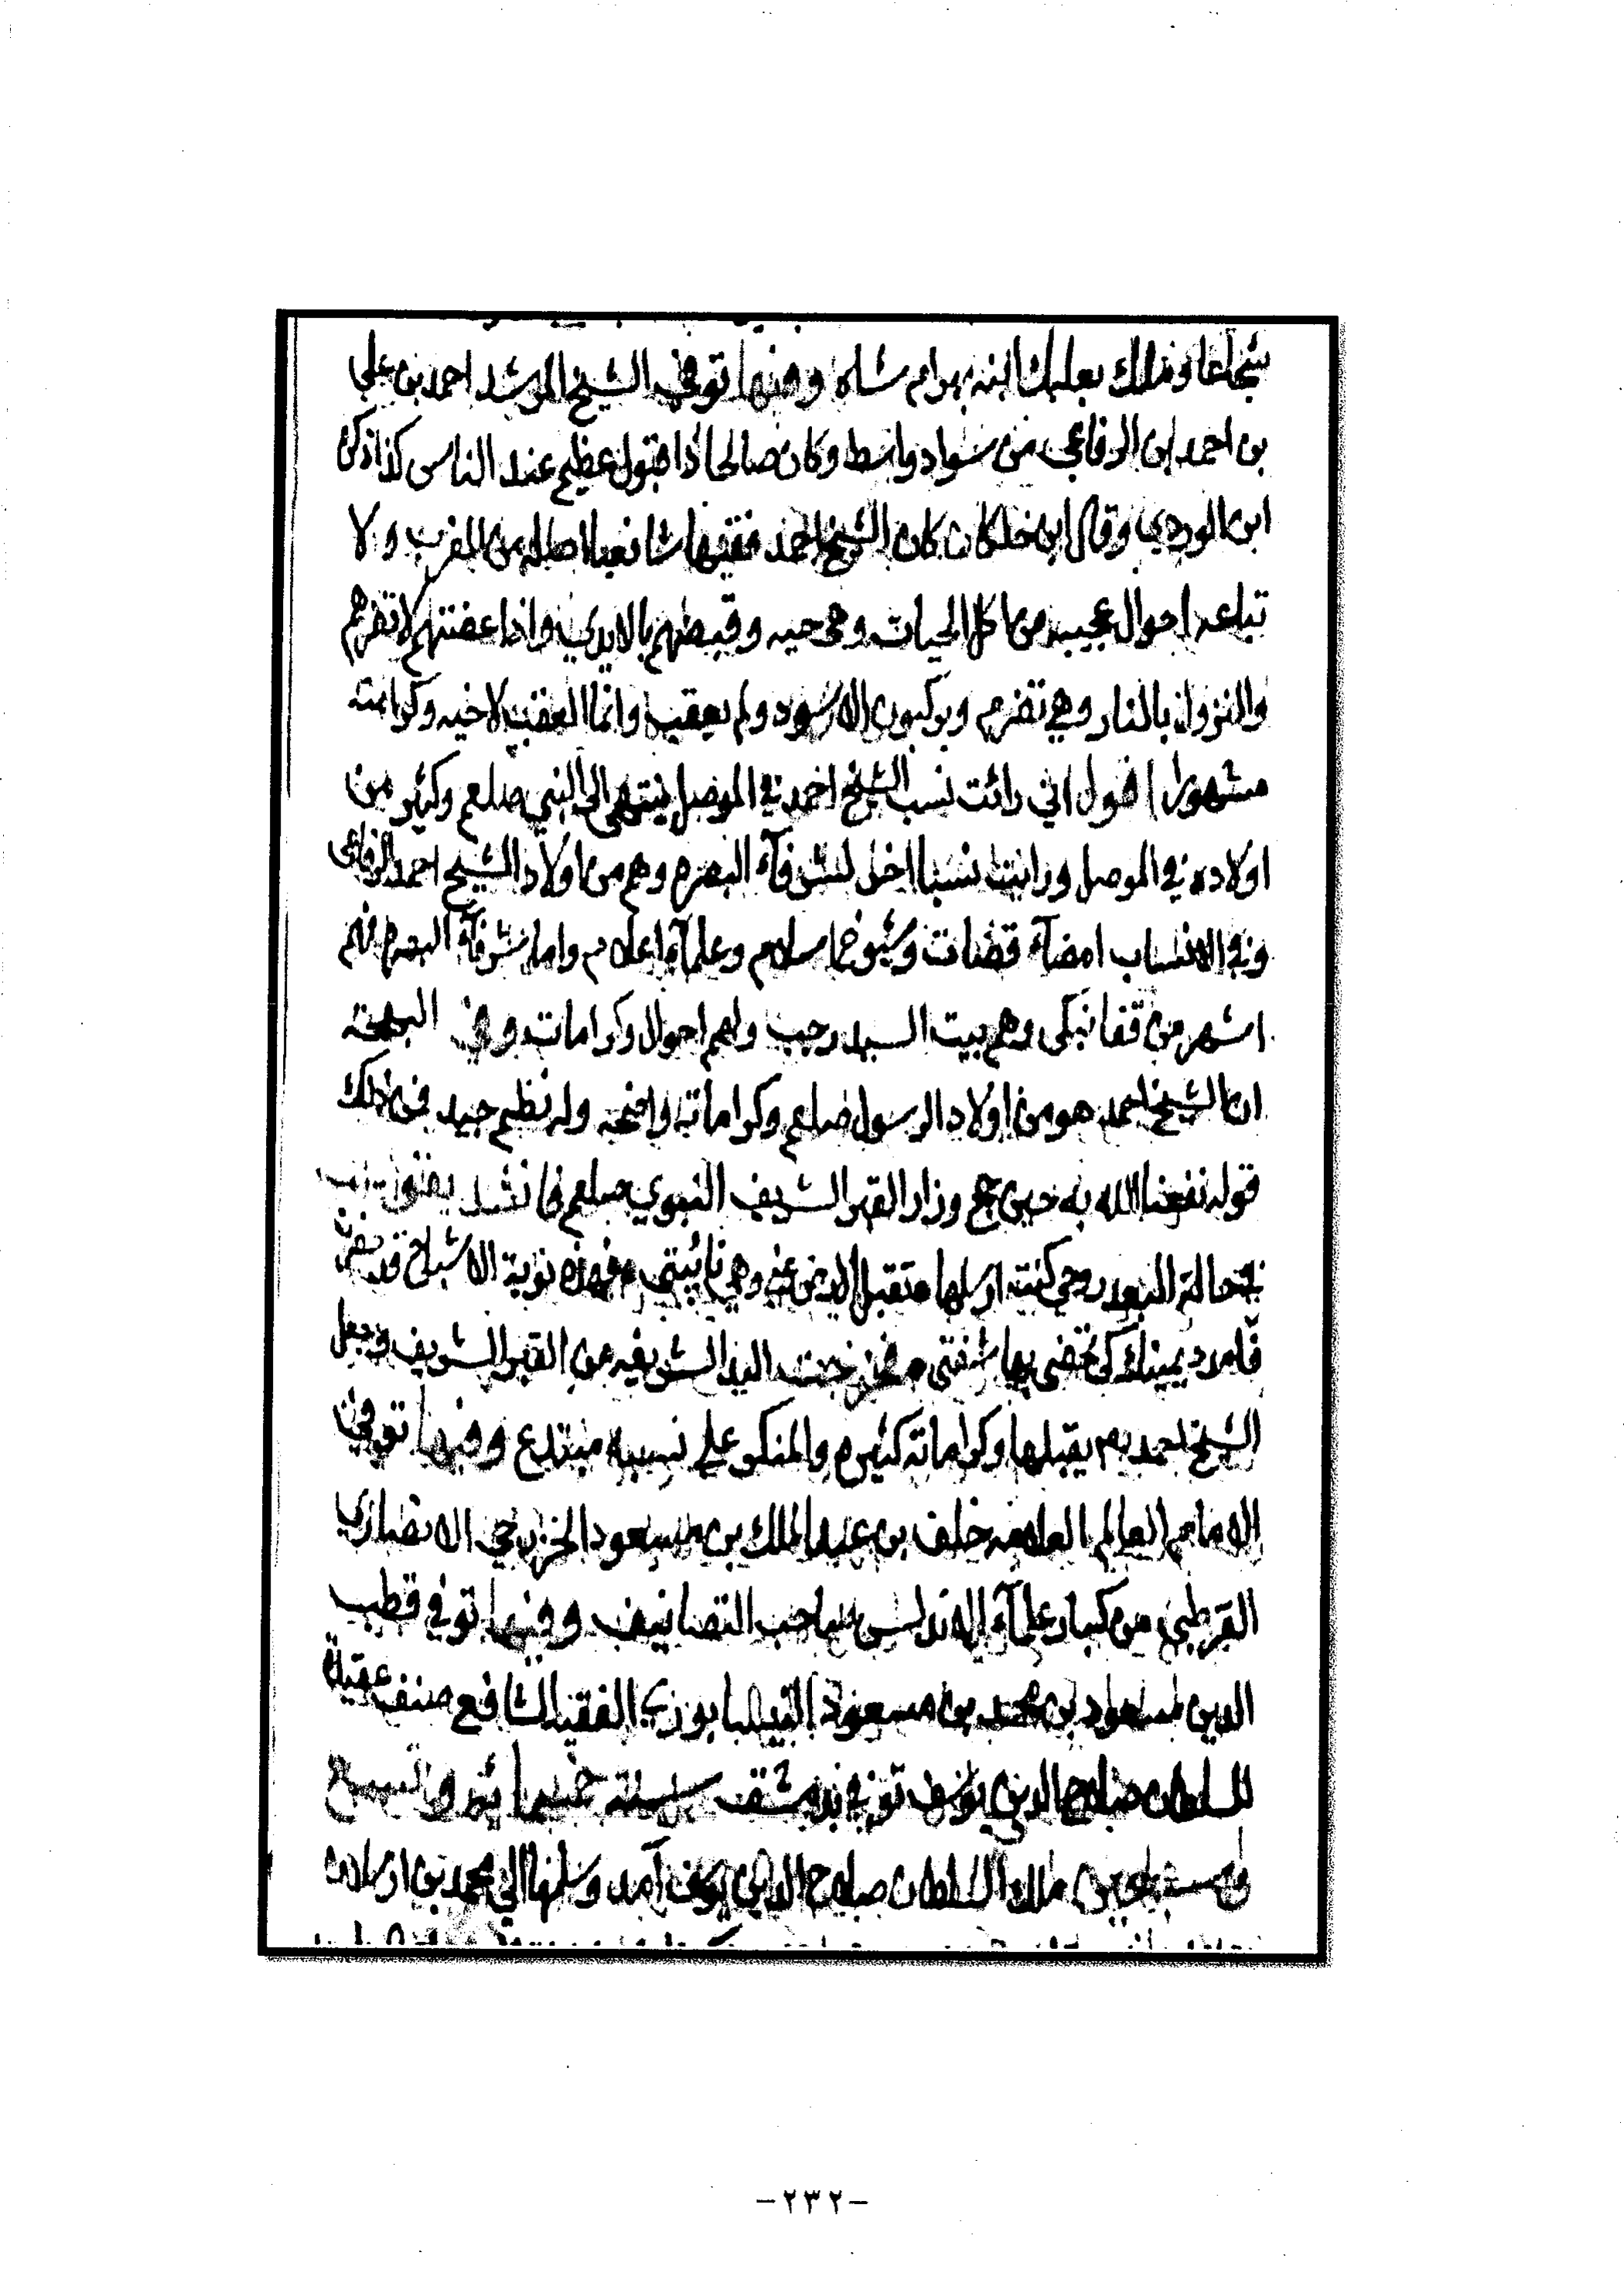 شجاعا وملك بعلبك ابنه بهرام شاه وفيها توفي الشيخ المرشد احمد بن علي
بن احمد ابن الرفاعي من سواد واسط وكان صالحا ذا قبول عظيم عند الناس كذا ذكر
ابن الوردي وقال ابن خلكان كان الشيخ احمد فقيها شافعيا اصله من المغرب ولا
تباعه احوال عجيبه من اكل الحيات وهي حيه وقبضهم بالايدي واذا عضتهم لا تضرهم
والنزول بالنار وهي تضرم ويركبون الاسود ولم يعقب وانما العقب لاخيه وكراماته
مشهورة اقول اني رائت نسب الشيخ احمد في الموصل ينتهي الى النبي صلعم وكثير من
اولاده في الموصل ورايت نسبا اخر لشرفآء البصره وهم من اولاد الشيخ احمد الرفاعي
وفي الانساب امضآء قضات وشيوخ اسلام وعلمآء اعلام واما شرفآء البصره فهم
اشهر من قفا نبكي وهم بيت السيد رجب ولهم احوال وكرامات وفي البهجة
ان الشيخ احمد هو من اولاد الرسول صلعم وكراماته واضحه وله نظم جيد فمن ذلك
قوله نفعنا الله به حين حج وزار القبر الشريف النبوي صلعم فانشد يقول
في حالة البعد روحي كنت ارسلها تقبل الارض عني وهي نائبتي فهذه نوبة الاشباح قد حضرت
فامدد يمينك كي تحضى بها شفتي فخرجت اليد الشريفه من القبر الشريف وجعل
الشيخ احمد يقبلها وكراماته كثيره والمنكر على نسبه مبتدع وفيها توفي
الامام العالم العلامه خلف بن عبد الملك بن مسعود الخزرجي الانصاري
القرطبي من كبار علمآء الاندلس صاحب التصانيف وفيها توفي قطب
الدين مسعود بن محمد بن مسعود النيسابوري الفقيه الشافعي صنف عقيدة
للسلطان صلاح الدين يوسف توفي بدمشق سنة خمسمائه والتسع
وسبعين ملك السلطان صلاح الدين يوسف آمد وسلمها الى محمد بن ارسلان
-٢٣٢-